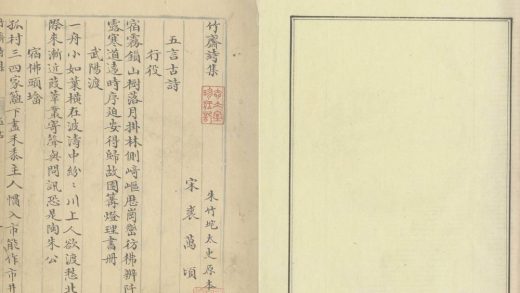 竹齋詩集
朱竹垞太史原本
宋裘萬頃
五言古詩
行役
宿霧鎖山樹落月掛林側崎嶇歷崗巒彷彿辨阡
露寒道遠時序迫安得歸故園篝燈理書冊
武陽渡
一舟小如葉橫在波濤中紛〻川上人欲渡愁北
際來漸近葭葦叢寄聲與問訊恐是陶朱公
宿佛頭墖
孤村三四家籬下盡禾黍主人慣入市能作市井